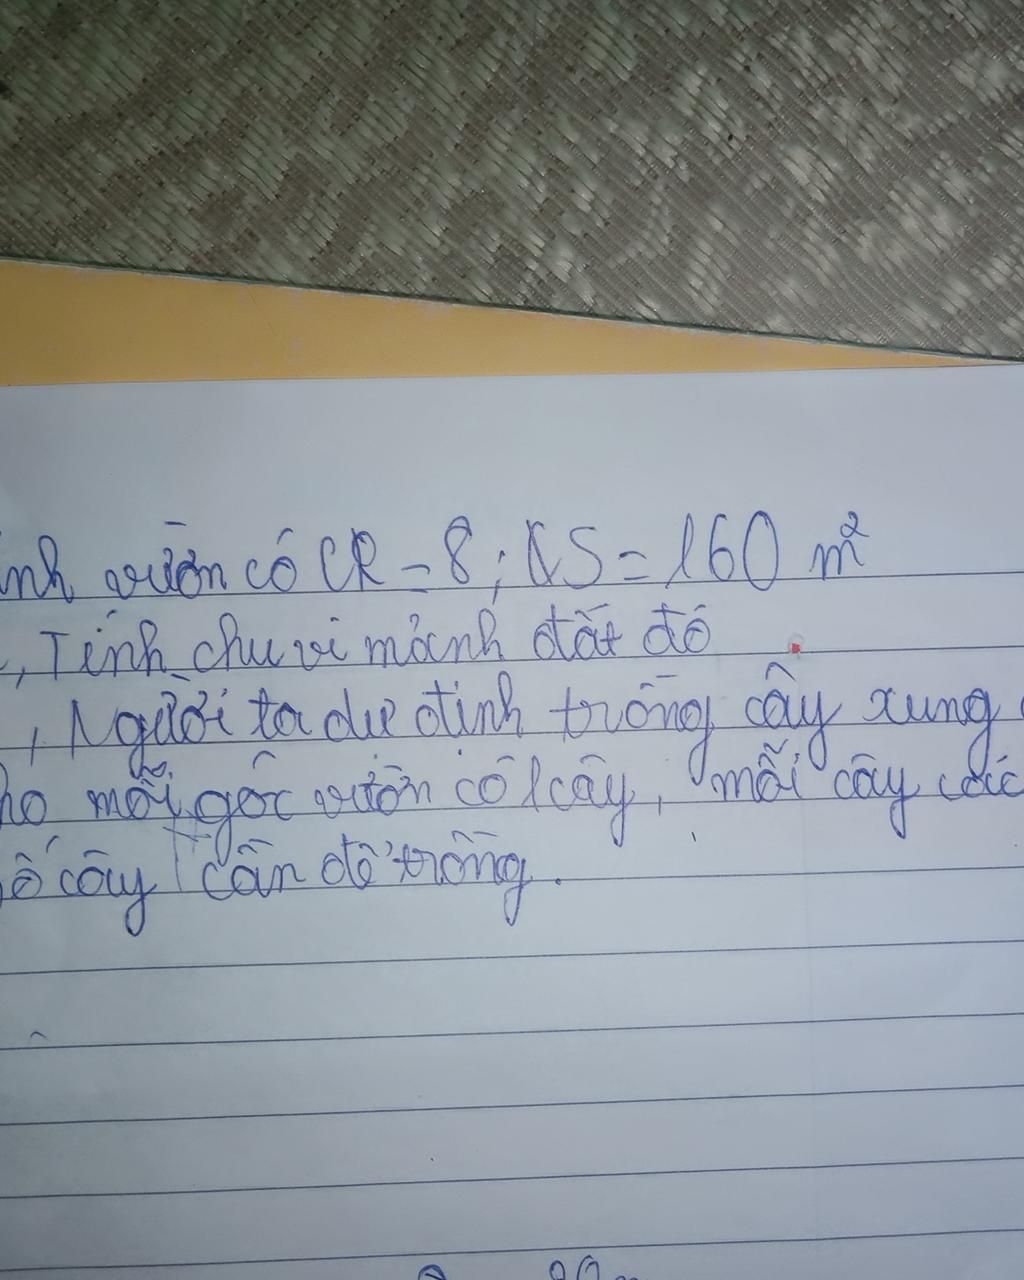 vườn có CR = 8; S = 160 m²
, Tính chu vi mảnh đất đó
, Người ta dự định trồng cây xung
mỗi góc vườn có 1 cây, mỗi cây các
cây cần để trồng.